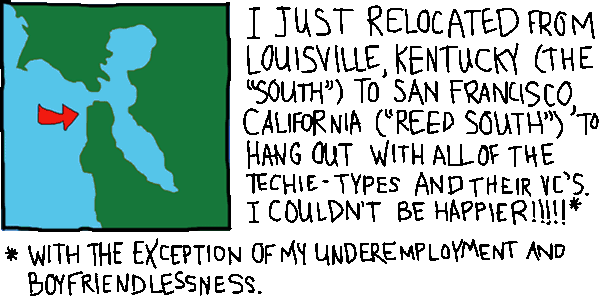 I JUST RELOCATED FROM
LOUISVILLE, KENTUCKY (THE
"SOUTH") TO SAN FRANCISCO,
CALIFORNIA ("REED SOUTH") TO
HANG OUT WITH ALL OF THE
TECHIE-TYPES AND THEIR VC'S.
I COULDN'T BE HAPPIER!!!!!*
* WITH THE EXCEPTION OF MY UNDEREMPLOYMENT AND
BOYFRIENDLESSNESS.